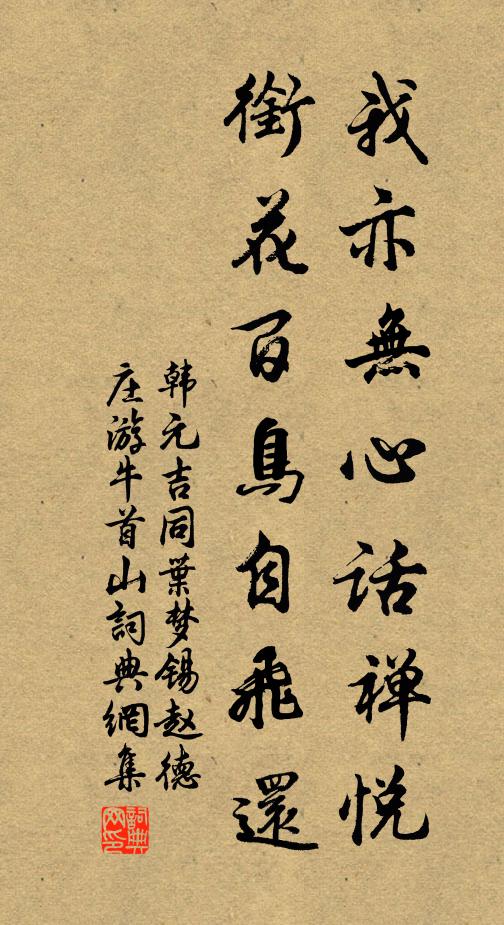 我亦無心話禅悅
銜花百鳥自飛還
韩元吉同葉梦锡赵德
庄游牛首山詞典網集
詞典
网印